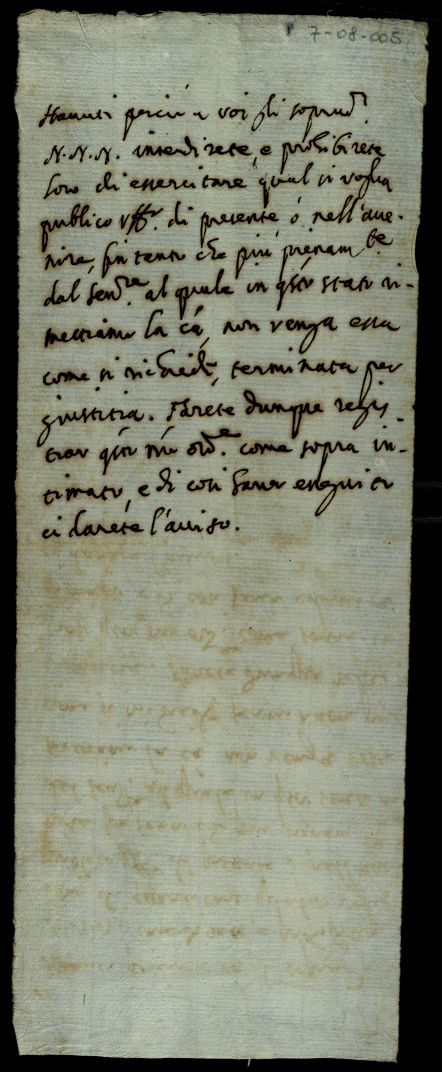 7-08-005
Hauuti perciò a voi gli soprad.ⁱ
N. N. N. interdirete, e prohibirete
loro di essercitare qual si voglia
publico uff.º di presente ò nell'aue-
nire, fin tanto che più pienam.te
dal Sen.re al quale in q.sto stato ri-
mettiamo la cã, non venga essa
come si richiede, terminata per
giustitia. Farete dunque regis
trar q.sto nro ord.e come sopra in-
timato, e di così hauer esseguito
ci darete l'auiso.